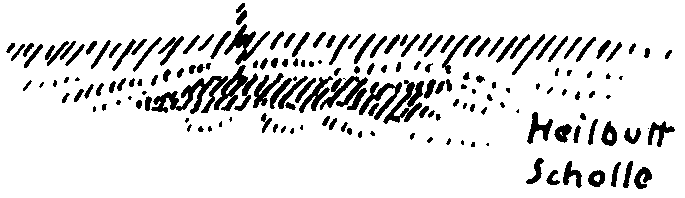 Heilbutt
Scholle